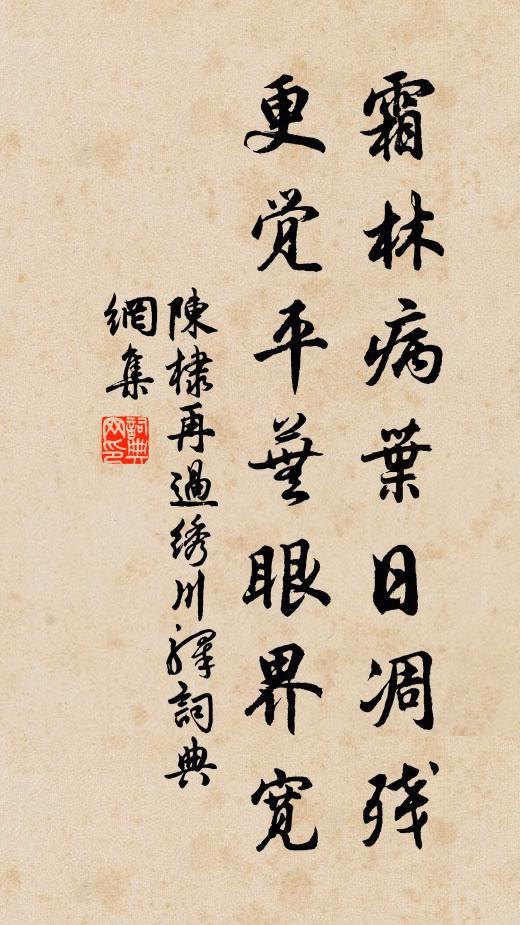 霜林病葉日凋残
更覚平蕪眼界寬
陳棣再過綉川驛詞典
網集
詞典
网印